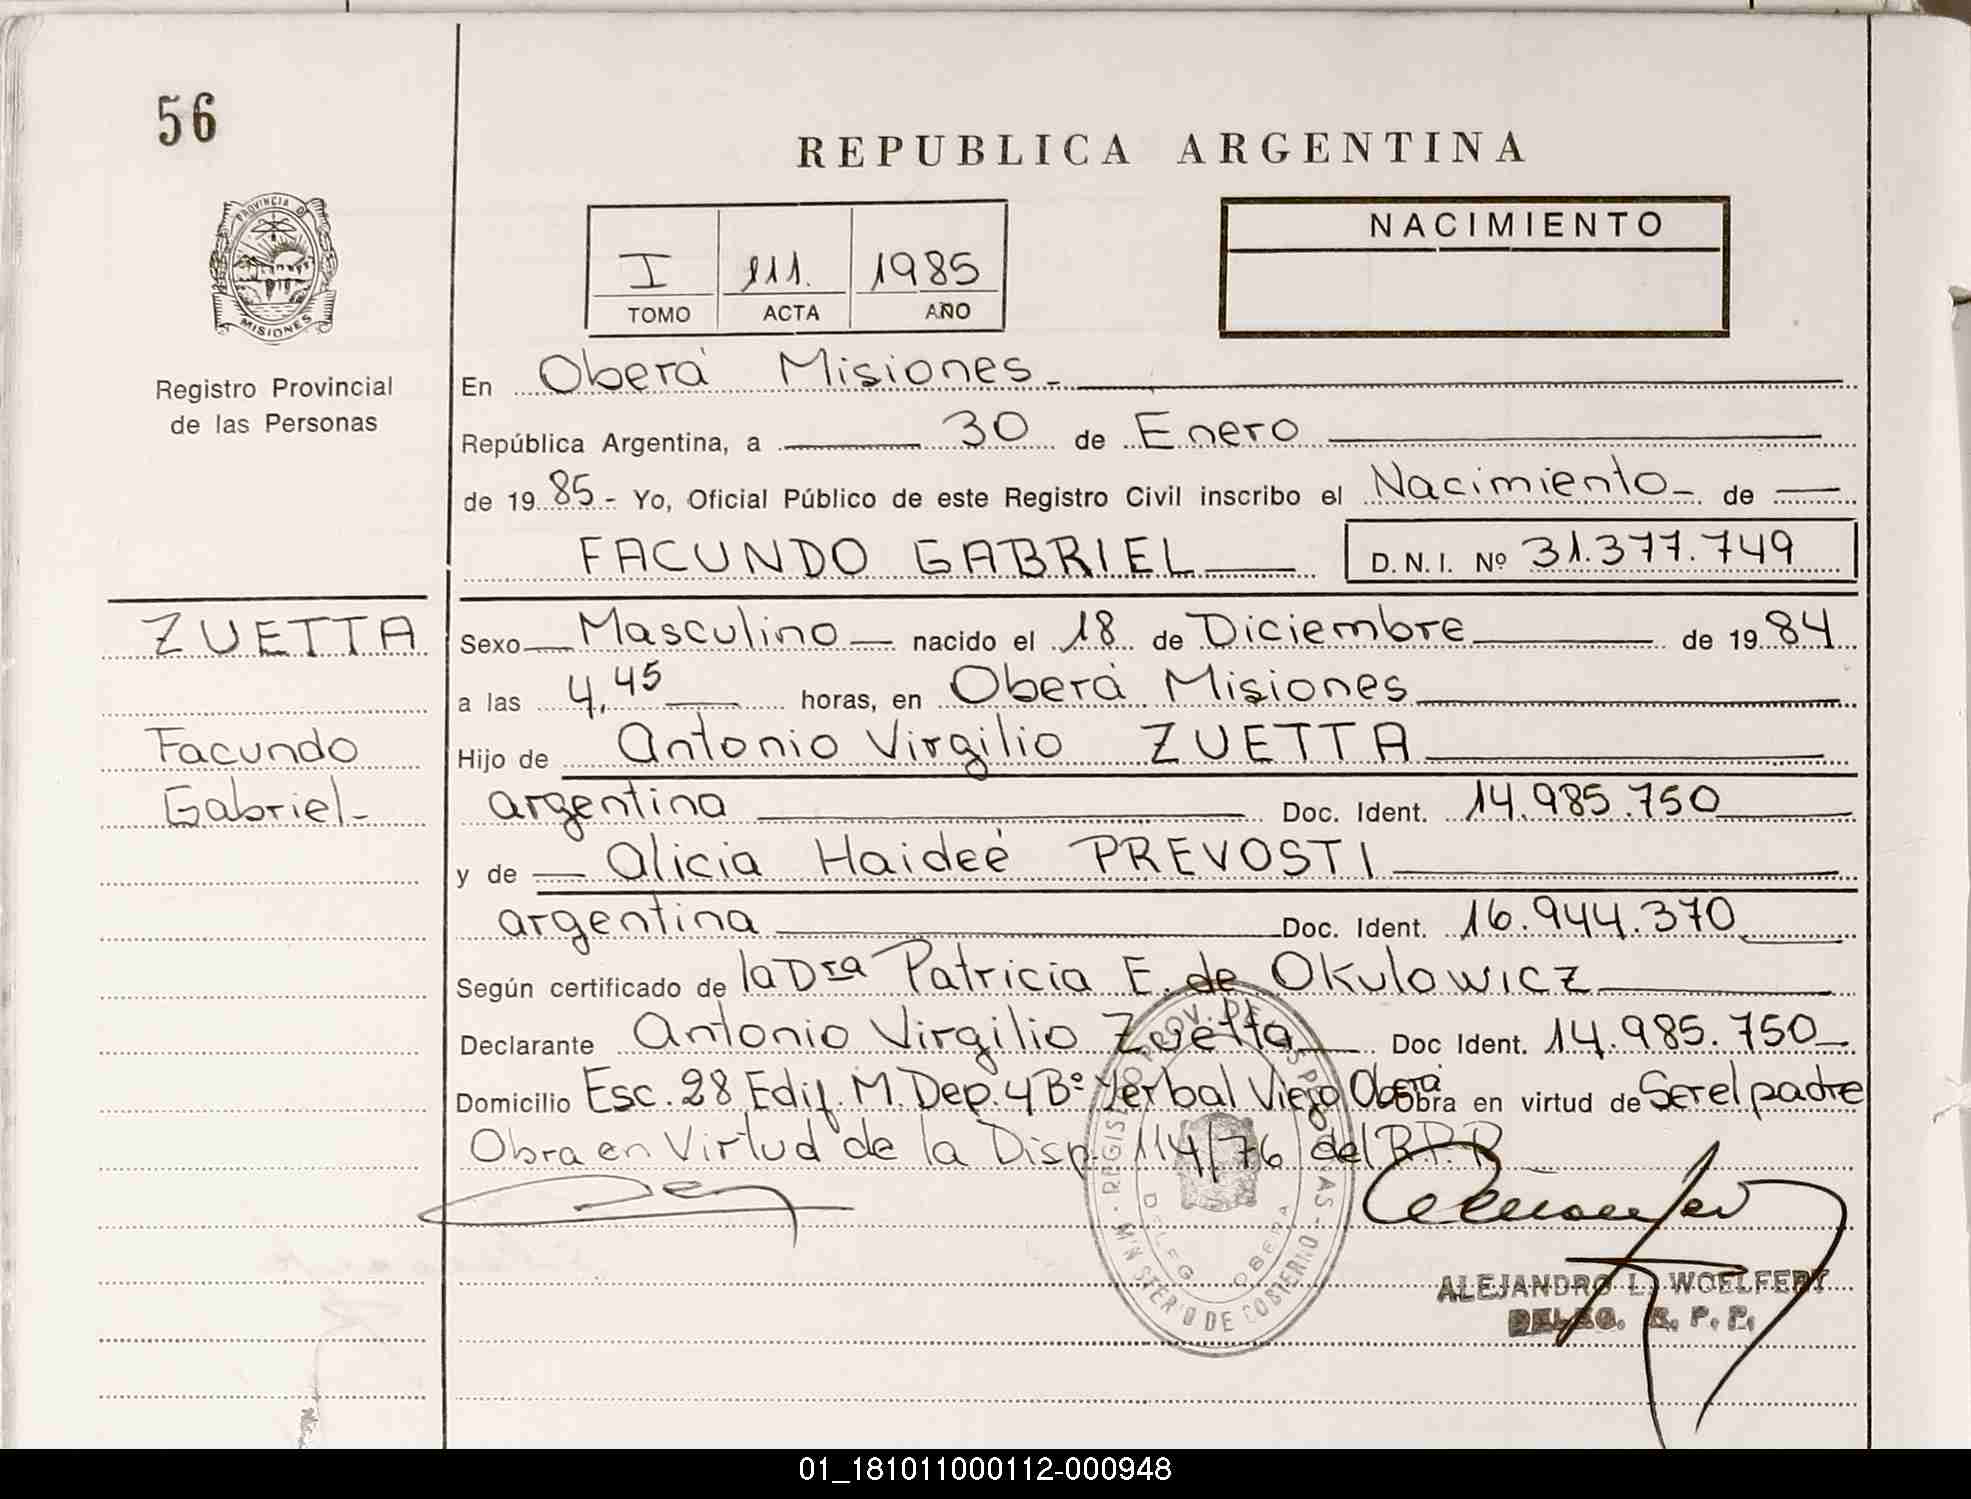 56
REPUBLICA ARGENTINA
PROVINCIA D
MISIONES
Registro Provincial
de las Personas
I 111. 1985
TOMO ACTA AÑO
NACIMIENTO
En Oberá Misiones.
República Argentina, a 30 de Enero
de 1985.- Yo, Oficial Público de este Registro Civil inscribo el Nacimiento de
FACUNDO GABRIEL D.N.I. Nº 31.377.749
ZUETTA
Facundo
Gabriel
Sexo Masculino nacido el 18 de Diciembre de 1984
a las 4,45 horas, en Oberá Misiones
Hijo de Antonio Virgilio ZUETTA
argentina Doc. Ident. 14.985.750
y de Alicia Haideé PREVOSTI
argentina Doc. Ident. 16.944.370
Según certificado de la Dra Patricia E. de Okulowicz
Declarante Antonio Virgilio Zuetta Doc Ident. 14.985.750
Domicilio Esc. 28 Edif. M. Dep. 4 Bº Yerbal Viejo Oberá Obra en virtud de Ser el padre
Obra en Virtud de la Disp. 114/76 del R.P.P.
DELEG. OBERA
MINISTERIO DE GOBIERNO
ALEJANDRO L. WOELFERT
DELEG. R. P. P.
01_181011000112-000948